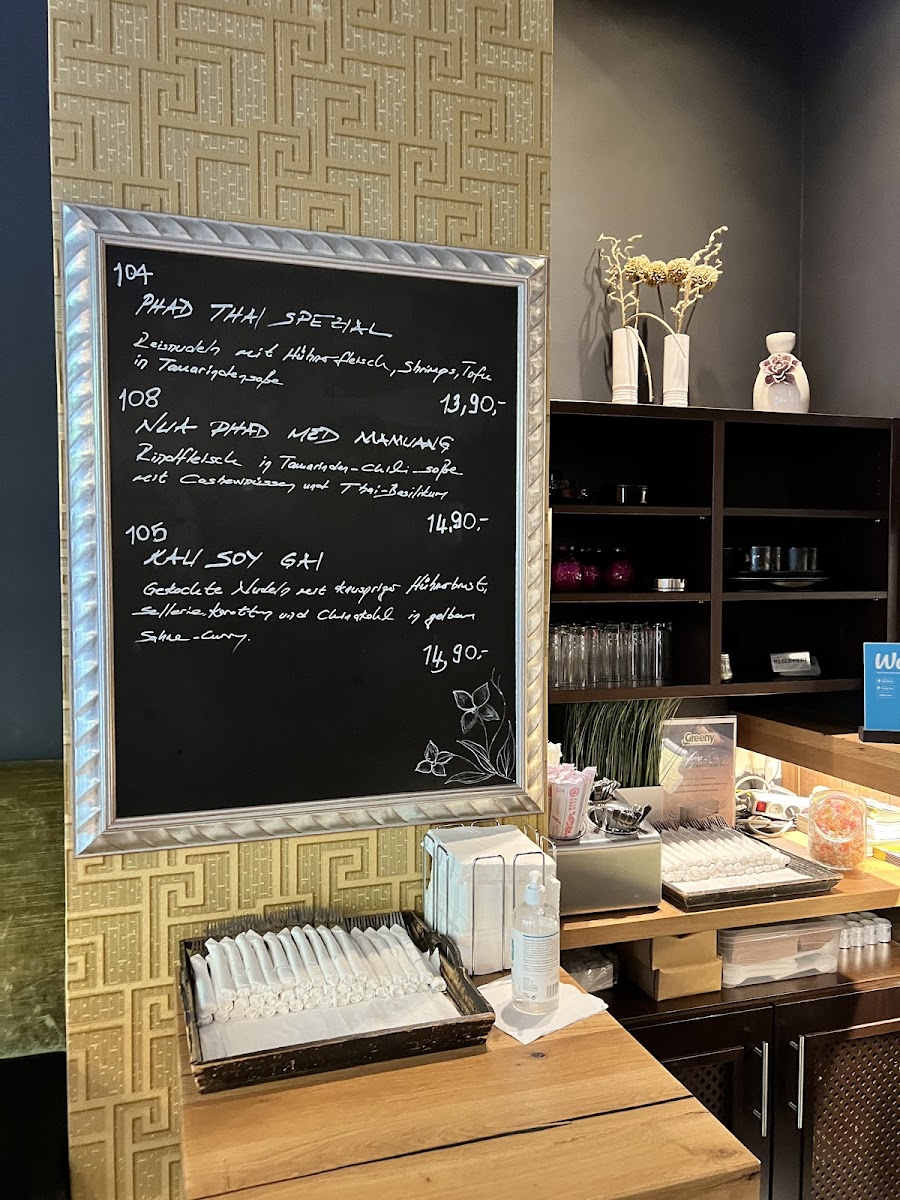 104
PHAD THAI SPEZIAL
Reisnudeln mit Hühnerfleisch, Shrimps, Tofu
in Tamarindensoße
13,90,-
108
NUA PHAD MED MAMUANG
Rindfleisch in Tamarinden-Chili-soße
mit Cashewnüssen und Thai-Basilikum
14,90,-
105
KAU SOY GAI
Gekochte Nudeln mit knuspriger Hühnerbrust,
Sellerie, Karotten und Chinakohl in gelbem
Sahne-Curry.
14,90,-
RESERVIERT
Greeny